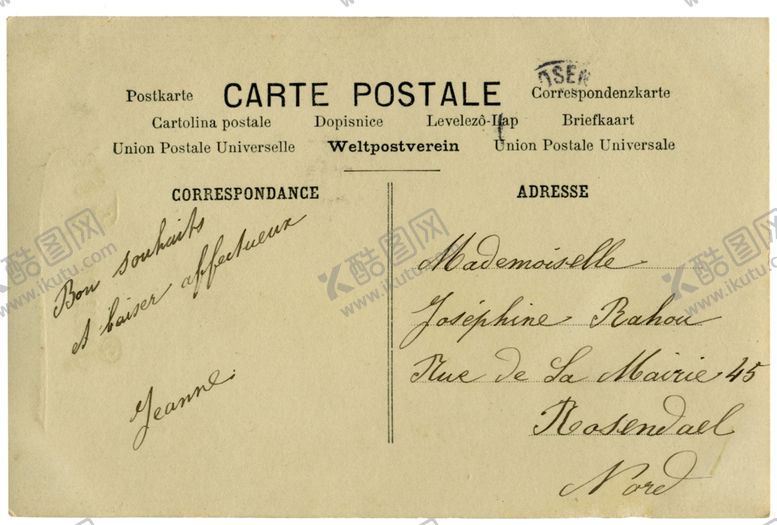 OSEN
Postkarte CARTE POSTALE Correspondenzkarte
Cartolina postale Dopisnice Levelezö-Lap Briefkaart
Union Postale Universelle Weltpostverein Union Postale Universale
CORRESPONDANCE
Bon souhaits
et baiser affectueux
Jeanne.
ADRESSE
Mademoiselle
Joséphine Rahou
Rue de La Mairie 45
Rosendael
Nord
酷图网
www.ikutu.com